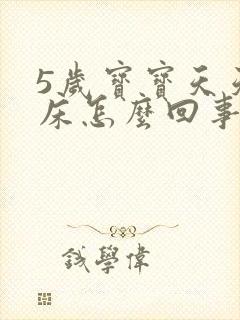 5歲寶寶天天
床怎麼回事
錢學偉